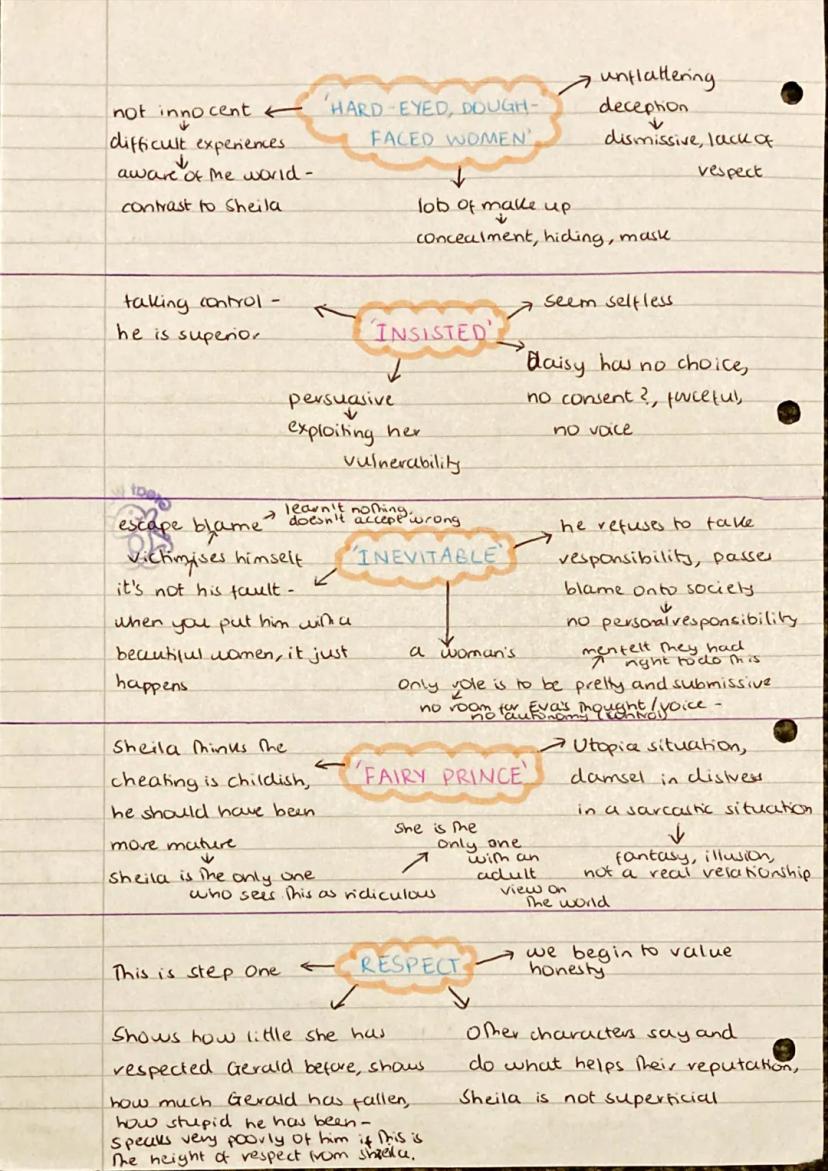 'HARD-EYED, DOUGH-
FACED WOMEN'
not innocent
difficult experiences
aware of the world -
contrast to Sheila
unflattering
deception
dismissive, lack of
respect
lots of make up
concealment, hiding, mask
'INSISTED'
taking control -
he is superior
seem selfless
Daisy has no choice,
no consent?, forceful,
no voice
persuasive
exploiting her
vulnerability
'INEVITABLE'
escape blame
learn't nothing,
doesn't accept wrong
victimises himself
it's not his fault -
when you put him with a
beautiful women, it just
happens
he refuses to take
responsibility, passes
blame onto society
no personal responsibility
men felt they had
right to do this
a woman's
only role is to be pretty and submissive
no room for Eva's thought/voice -
no autonomy (control)
'FAIRY PRINCE'
Sheila thinks the
cheating is childish,
he should have been
more mature
Sheila is the only one
who sees this as ridiculous
she is the
only one
with an
adult
view on
the world
Utopia situation,
damsel in distress
in a sarcastic situation
fantasy, illusion,
not a real relationship
RESPECT
This is step one
we begin to value
honesty
Shows how little she has
respected Gerald before, shows
how much Gerald has fallen,
how stupid he has been -
speaks very poorly of him if this is
the height of respect from sheila.
Other characters say and
do what helps their reputation,
Sheila is not superficial